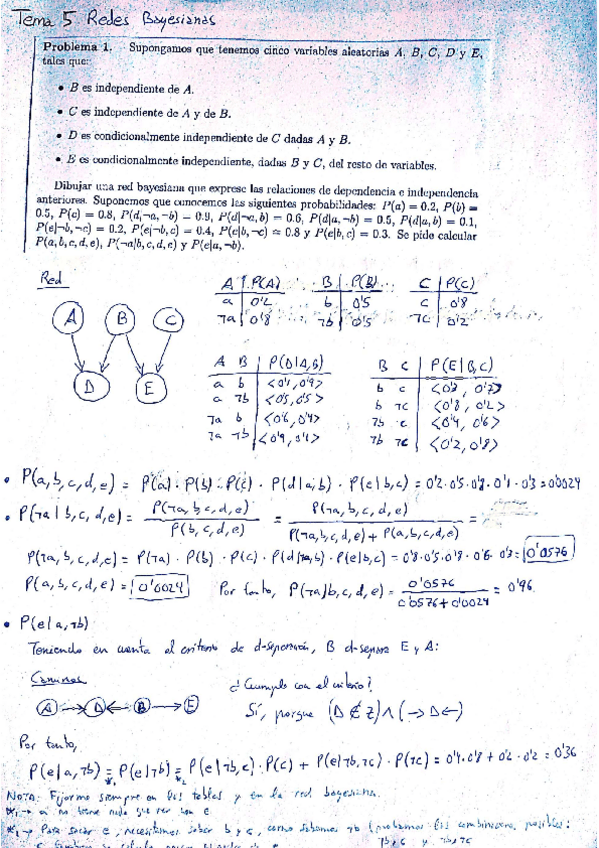 Tema 5 Redes Bayesianas
Problema 1. Supongamos que tenemos cinco variables aleatorias A, B, C, D y E,
tales que:
• B es independiente de A.
• C es independiente de A y de B.
• D es condicionalmente independiente de C dadas A y B.
• E es condicionalmente independiente, dadas B y C, del resto de variables.
Dibujar una red bayesiana que exprese las relaciones de dependencia e independencia
anteriores. Suponemos que conocemos las siguientes probabilidades: P(a) = 0.2, P(b) =
0.5, P(c) = 0.8, P(d|¬a,¬b) = 0.9, P(d|¬a,b) = 0.6, P(d|a,¬b) = 0.5, P(d|a,b) = 0.1,
P(e|¬b,¬c) = 0.2, P(e|¬b,c) = 0.4, P(e|b,¬c) = 0.8 y P(e|b,c) = 0.3. Se pide calcular
P(a,b,c,d,e), P(¬a|b,c,d,e) y P(e|a,¬b).
Red
A P(A) B P(B) C P(C)
a 0'2 b 0'5 c 0'8
¬a 0'8 ¬b 0'5 ¬c 0'2
A B C
D E
A B P(D|A,B) B C P(E|B,C)
a b <0'1, 0'9> b c <0'3, 0'7>
a ¬b <0'5, 0'5> b ¬c <0'8, 0'2>
¬a b <0'6, 0'4> ¬b c <0'4, 0'6>
¬a ¬b <0'9, 0'1> ¬b ¬c <0'2, 0'8>
• P(a,b,c,d,e) = P(a) · P(b) · P(c) · P(d|a,b) · P(e|b,c) = 0'2 · 0'5 · 0'8 · 0'1 · 0'3 = 0'0024
• P(¬a|b,c,d,e) = P(¬a,b,c,d,e) / P(b,c,d,e) = P(¬a,b,c,d,e) / P(¬a,b,c,d,e) + P(a,b,c,d,e) =
P(¬a,b,c,d,e) = P(¬a) · P(b) · P(c) · P(d|¬a,b) · P(e|b,c) = 0'8 · 0'5 · 0'8 · 0'6 · 0'3 = 0'0576
P(a,b,c,d,e) = 0'0024 Por tanto, P(¬a|b,c,d,e) = 0'0576 / 0'0576 + 0'0024 = 0'96
• P(e|a,¬b)
Teniendo en cuenta el criterio de d-separación, B d-separa E y A:
Caminos ¿Cumple con el criterio?
A → D ← B → E Sí, porque (D ∉ Z) ∧ (→ D ←)
Por tanto,
P(e|a,¬b) =*1 P(e|¬b) =*2 P(e|¬b,c) · P(c) + P(e|¬b,¬c) · P(¬c) = 0'4 · 0'8 + 0'2 · 0'2 = 0'36
NOTA: Fijarme siempre en las tablas y en la red bayesiana.
*1 → a no tiene nada que ver con e
*2 → Para sacar e, necesitamos saber b y c, como sabemos ¬b posibles:
¬b,c y ¬b,¬c